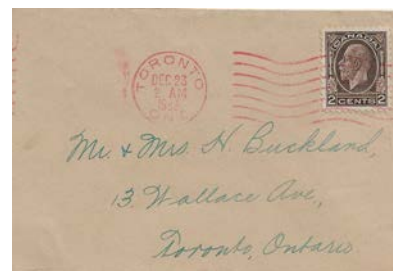 TORONTO
DEC 23
AM
ONT.
CANADA
2 CENTS 2
Mr. & Mrs. H. Buckland,
13 Wallace Ave,
Toronto, Ontario.